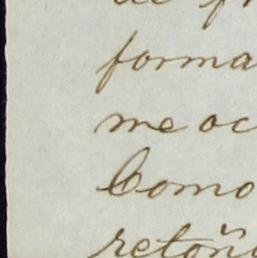 de fr
forma
me oc
Como
retoñ